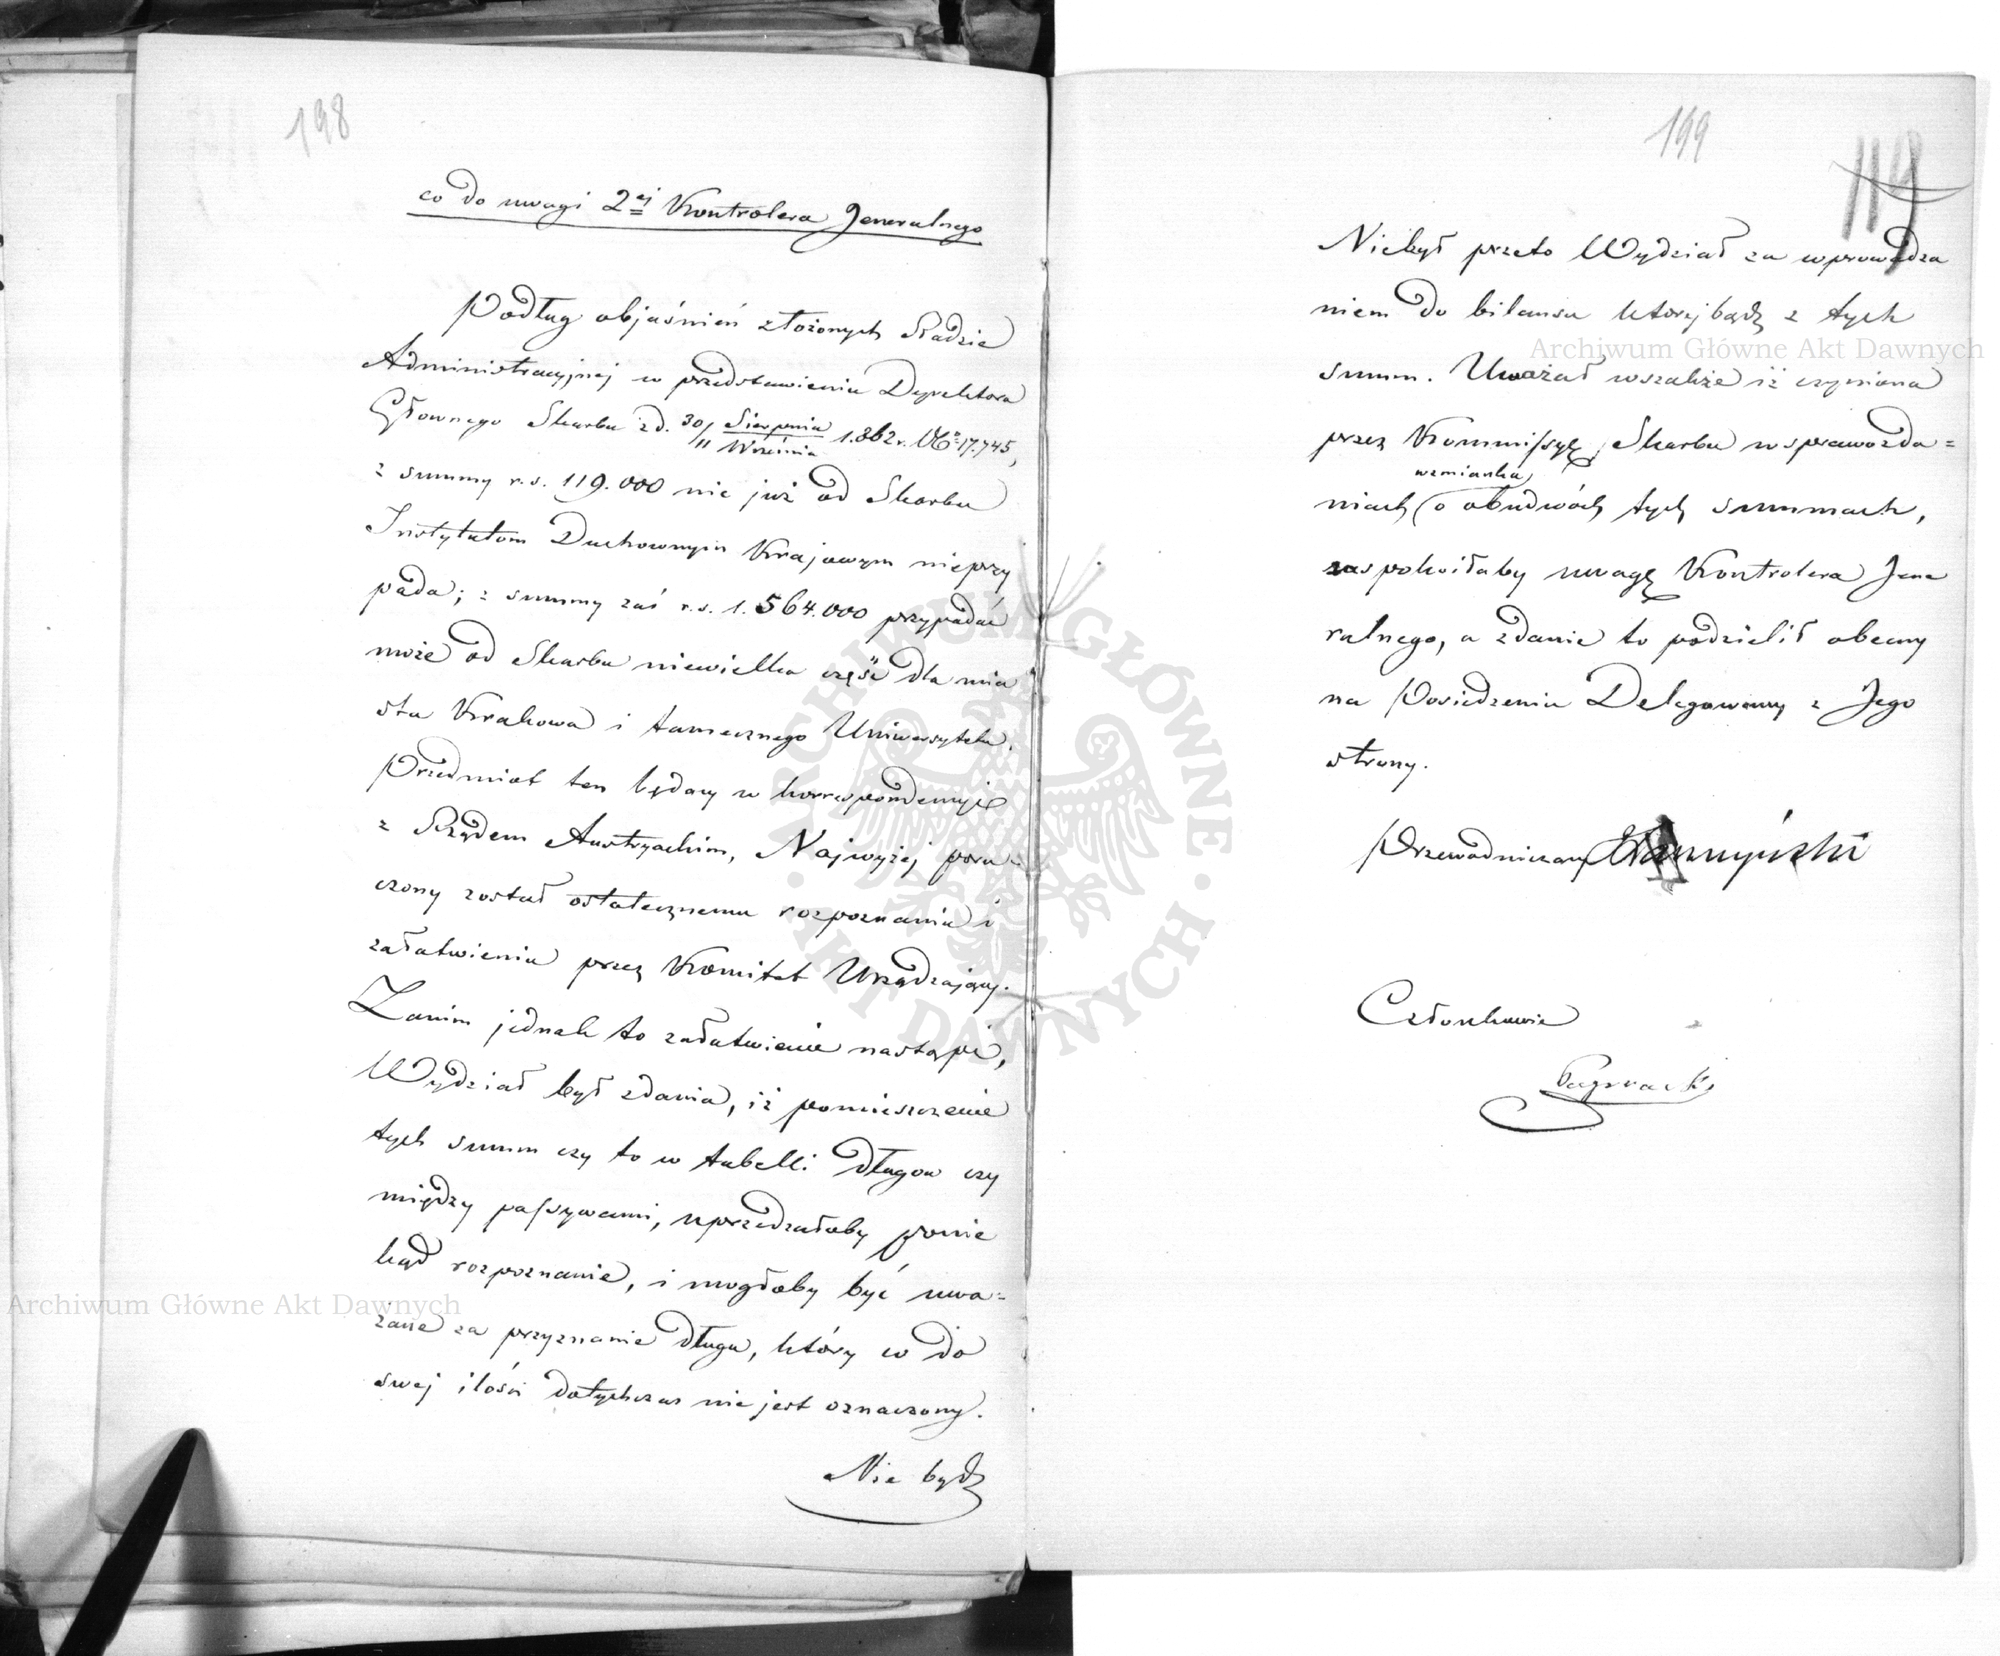 198
co do uwagi 2ej Kontrolera Jeneralnego
Podług objaśnień złożonych Radzie
Administracyjnej w przedstawieniu Dyrektora
Głownego Skarbu z d. 30/11 Sierpnia/Września 1.862 r. No 17.745,
z summy r.s. 119.000 nic już od Skarbu
Instytutom Duchownym Krajowym nieprzy
pada; z summy zaś r.s. 1.564.000 przypadać
może od Skarbu niewielka część dla mia
sta Krakowa i tamecznego Uniwersytetu.
Przedmiot ten będący w korrespondencyi
z Rządem Austryackim, Najwyżej poru-
czony został ostatecznemu rozpoznaniu i
załatwieniu przez Komitet Urządzający.
Zanim jednak to załatwienie nastąpi,
Wydział był zdania, iż pomieszczenie
tych summ czy to w tabelli długow czy
między passywami, uprzedzałoby ponie
kąd rozpoznanie, i mogłoby być uwa=
żane za przyznanie długu, który co do
swej ilości dotychczas nie jest oznaczony.
Nie był
199
119
Niebył przeto Wydział za wprowadza
niem do bilansu ktorejbądź z tych
summ. Uważał wszakże iż czyniona
przez Kommissyę Skarbu w sprawozda=
wzmianka
niach o obudwóch tych summach,
zaspokoiłaby uwagę Kontrolera Jene
ralnego, a zdanie to podzielił obecny
na Posiedzeniu Delegowany z Jego
strony.
Przewodniczący
Członkowie
Archiwum Główne Akt Dawnych
Archiwum Główne Akt Dawnych
ARCHIWUM GŁÓWNE
AKT DAWNYCH